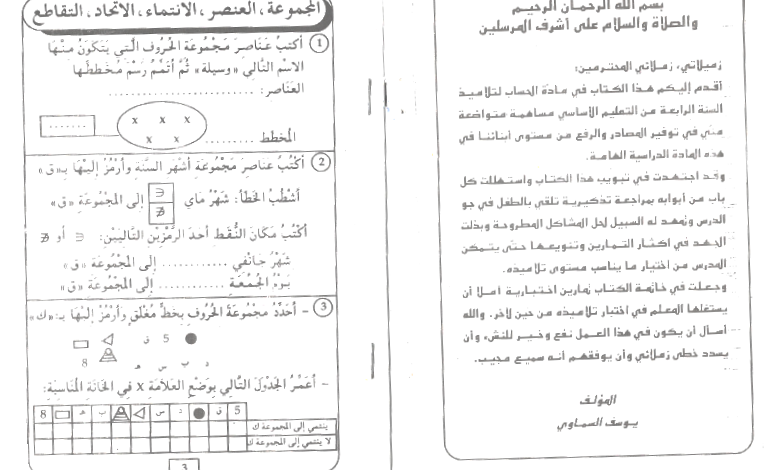 بسم الله الرحمان الرحيم
والصلاة والسلام على أشرف المرسلين
زميلاتي، زملائي المحترمين:
أقدم إليكم هذا الكتاب في مادة الحساب لتلاميذ
السنة الرابعة من التعليم الأساسي مساهمة متواضعة
مني في توفير المصادر والرفع من مستوى أبنائنا في
هذه المادة الدراسية الهامة.
وقد اجتهدت في تبويب هذا الكتاب واستهللت كل
باب من أبوابه بمراجعة تذكيرية تلقي بالطفل في جو
الدرس وتمهد له السبيل لحل المشاكل المطروحة وبذلت
الجهد في اكثار التمارين وتنويعها حتى يتمكن
المدرس من اختيار ما يناسب مستوى تلاميذه.
وجعلت في خاتمة الكتاب تمارين اختبارية أملا أن
يستغلها المعلم في اختبار تلاميذه من حين لآخر. والله
أسأل أن يكون في هذا العمل نفع وخير للنشء وأن
يسدد خطى زملائي وأن يوفقهم أنه سميع مجيب.
المؤلف
يوسف السماوي
المجموعة، العنصر، الانتماء، الاتحاد، التقاطع
1 أكتب عناصر مجموعة الحروف التي يتكون منها
الاسم التالي «وسيلة» ثم أتمم رسم مخططها
العناصر: ........................
x x x
x x
المخطط ............ .......
2 أكتب عناصر مجموعة أشهر السنة وأرمز إليها بـ«ق»
أشطب الخطأ: شهر ماي ∈ ∉ إلى المجموعة «ق»
أكتب مكان النقط أحد الرمزين التاليين: ∈ أو ∉
شهر جانفي ............ إلى المجموعة «ق»
يوم الجمعة ............ إلى المجموعة «ق»
3 - أحدد مجموعة الحروف بخط مغلق وأرمز إليها بـ: «ك»
5 ق
د ب س هـ 8
- أعمر الجدول التالي بوضع العلامة x في الخانة المناسبة:
5 ق د س ب هـ 8
ينتمي إلى المجموعة ك
لا ينتمي إلى المجموعة ك
3